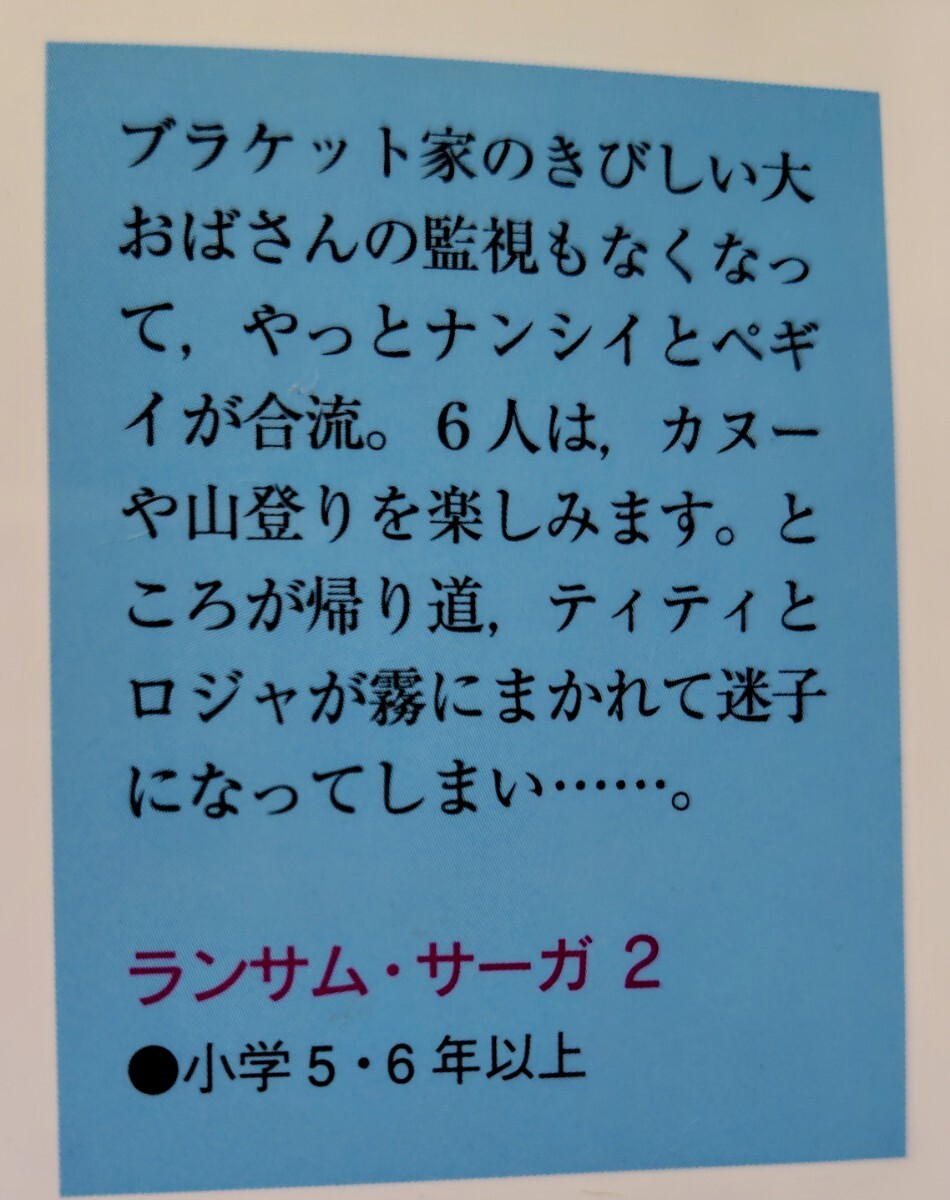 ブラケット家のきびしい大
おばさんの監視もなくなっ
て，やっとナンシイとペギ
イが合流。６人は，カヌー
や山登りを楽しみます。と
ころが帰り道，ティティと
ロジャが霧にまかれて迷子
になってしまい……。
ランサム・サーガ 2
●小学5・6年以上